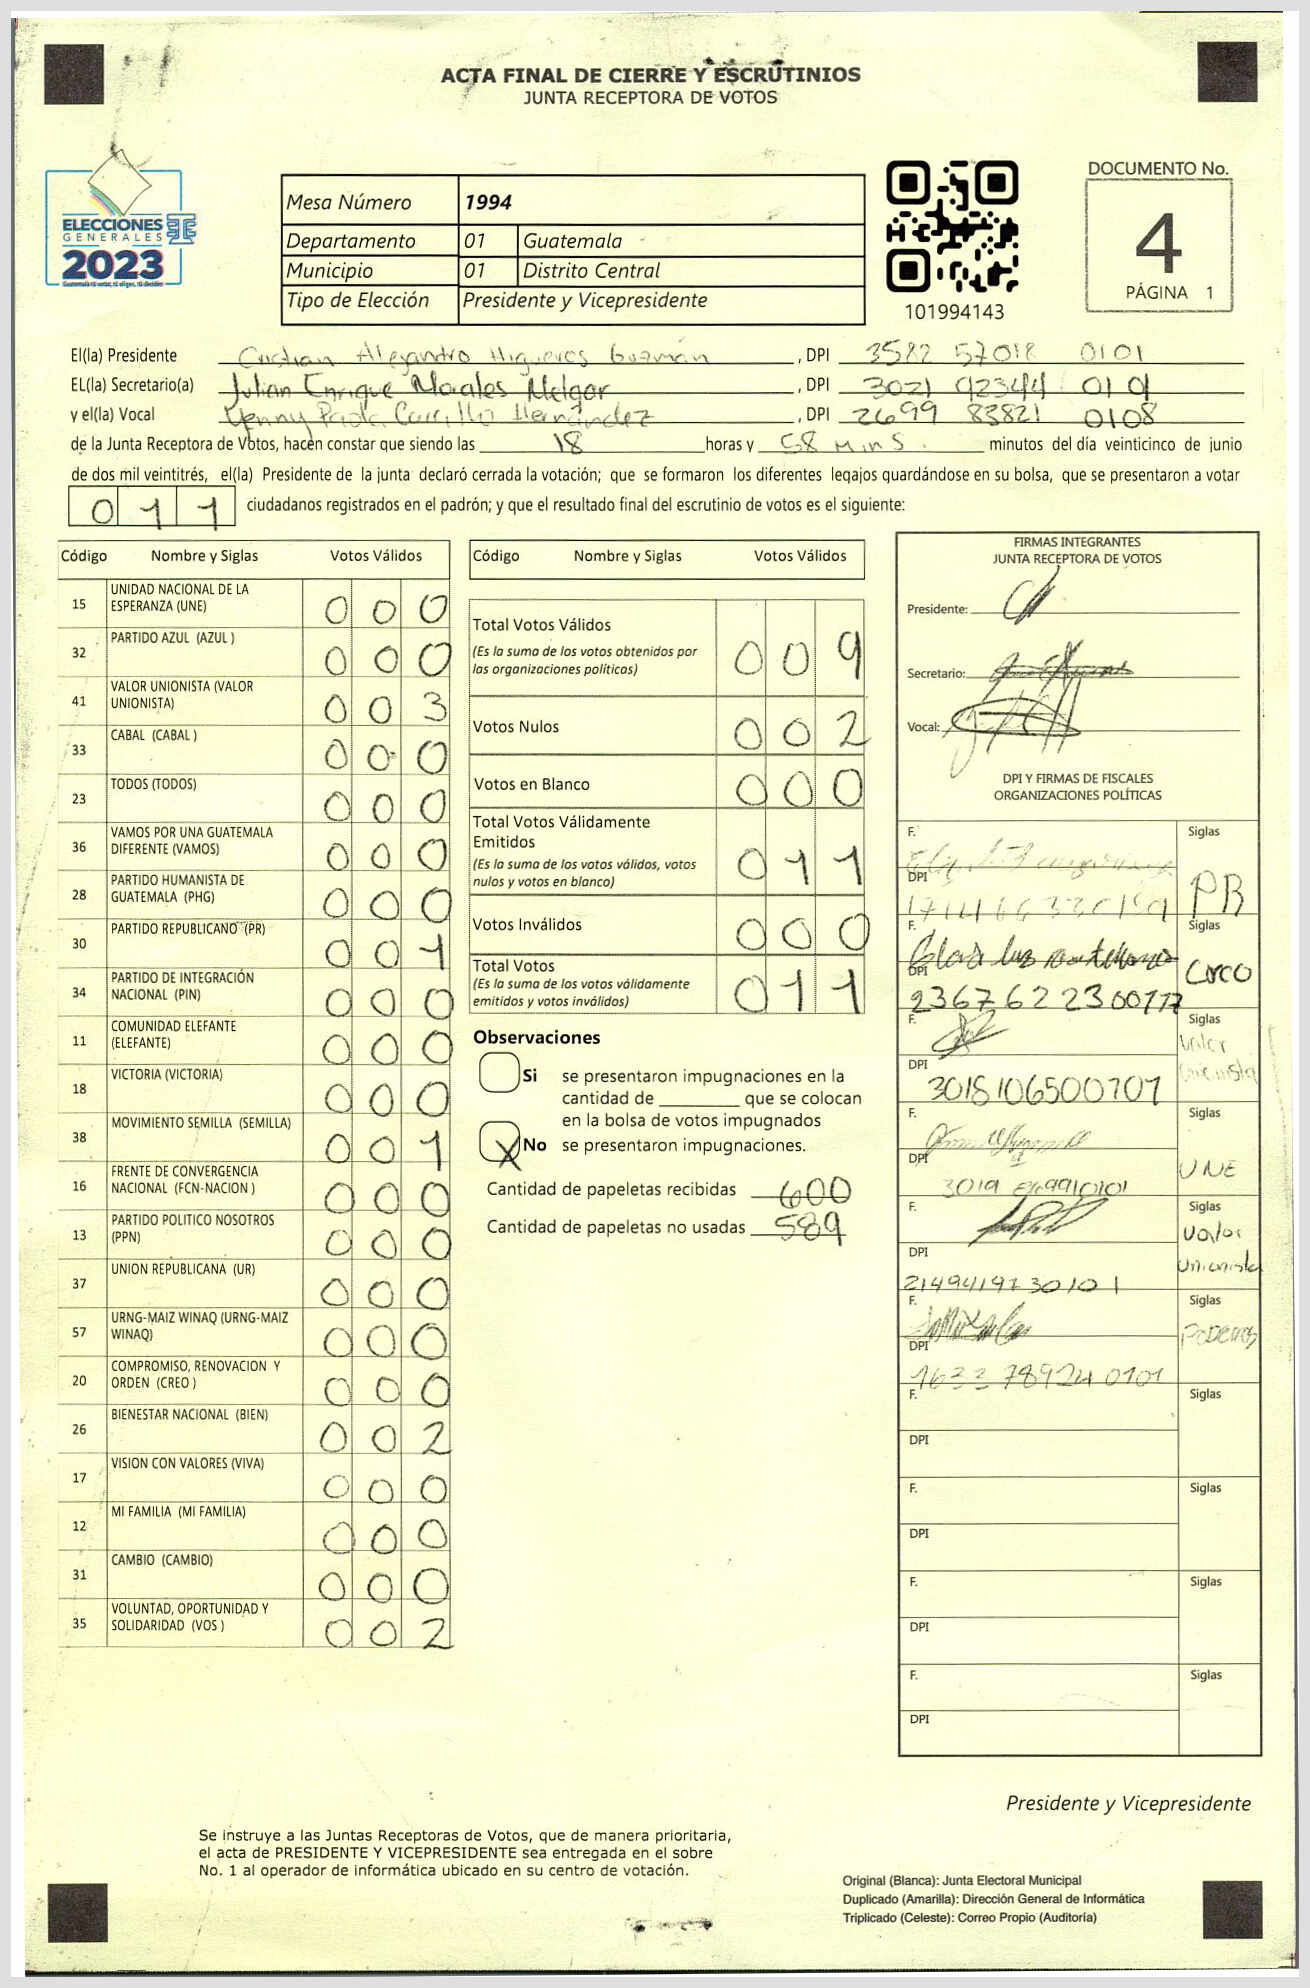 ACTA FINAL DE CIERRE Y ESCRUTINIOS
JUNTA RECEPTORA DE VOTOS
ELECCIONES
GENERALES
2023
Mesa Número 1994
Departamento 01 Guatemala
Municipio 01 Distrito Central
Tipo de Elección Presidente y Vicepresidente
101994143
DOCUMENTO No.
4
PÁGINA 1
El(la) Presidente Cristian Alejandro Higueros Guzmán , DPI 3582 57018 0101
EL(la) Secretario(a) Julian Enrique Morales Melgar , DPI 3021 92344 0101
y el(la) Vocal Yenny Paola Carrillo Hernández , DPI 2699 83821 0108
de la Junta Receptora de Votos, hacen constar que siendo las 18 horas y 58 mins. minutos del día veinticinco de junio
de dos mil veintitrés, el(la) Presidente de la junta declaró cerrada la votación; que se formaron los diferentes legajos guardándose en su bolsa, que se presentaron a votar
011 ciudadanos registrados en el padrón; y que el resultado final del escrutinio de votos es el siguiente:
Código Nombre y Siglas Votos Válidos
15 UNIDAD NACIONAL DE LA ESPERANZA (UNE) 000
32 PARTIDO AZUL (AZUL ) 000
41 VALOR UNIONISTA (VALOR UNIONISTA) 003
33 CABAL (CABAL ) 000
23 TODOS (TODOS) 000
36 VAMOS POR UNA GUATEMALA DIFERENTE (VAMOS) 000
28 PARTIDO HUMANISTA DE GUATEMALA (PHG) 000
30 PARTIDO REPUBLICANO (PR) 001
34 PARTIDO DE INTEGRACIÓN NACIONAL (PIN) 000
11 COMUNIDAD ELEFANTE (ELEFANTE) 000
18 VICTORIA (VICTORIA) 000
38 MOVIMIENTO SEMILLA (SEMILLA) 001
16 FRENTE DE CONVERGENCIA NACIONAL (FCN-NACION ) 000
13 PARTIDO POLITICO NOSOTROS (PPN) 000
37 UNION REPUBLICANA (UR) 000
57 URNG-MAIZ WINAQ (URNG-MAIZ WINAQ) 000
20 COMPROMISO, RENOVACION Y ORDEN (CREO ) 000
26 BIENESTAR NACIONAL (BIEN) 002
17 VISION CON VALORES (VIVA) 000
12 MI FAMILIA (MI FAMILIA) 000
31 CAMBIO (CAMBIO) 000
35 VOLUNTAD, OPORTUNIDAD Y SOLIDARIDAD (VOS ) 002
Código Nombre y Siglas Votos Válidos
Total Votos Válidos 009
(Es la suma de los votos obtenidos por
las organizaciones políticas)
Votos Nulos 002
Votos en Blanco 000
Total Votos Válidamente
Emitidos 011
(Es la suma de los votos válidos, votos
nulos y votos en blanco)
Votos Inválidos 000
Total Votos 011
(Es la suma de los votos válidamente
emitidos y votos inválidos)
Observaciones
Si se presentaron impugnaciones en la
cantidad de ________ que se colocan
en la bolsa de votos impugnados
X No se presentaron impugnaciones.
Cantidad de papeletas recibidas 600
Cantidad de papeletas no usadas 589
FIRMAS INTEGRANTES
JUNTA RECEPTORA DE VOTOS
Presidente:
Secretario:
Vocal:
DPI Y FIRMAS DE FISCALES
ORGANIZACIONES POLÍTICAS
F. Siglas
DPI PR
F. Siglas
DPI 2367622300117 Creo
F. Siglas
Valor
DPI Unionista
3018106500707
F.
DPI UNE
F. Siglas
Valor
DPI Unionista
2149419730101
F. Siglas
DPI Podemos
1633 78924 0101
F. Siglas
DPI
F. Siglas
DPI
F. Siglas
DPI
F. Siglas
DPI
Presidente y Vicepresidente
Se instruye a las Juntas Receptoras de Votos, que de manera prioritaria,
el acta de PRESIDENTE Y VICEPRESIDENTE sea entregada en el sobre
No. 1 al operador de informática ubicado en su centro de votación.
Original (Blanca): Junta Electoral Municipal
Duplicado (Amarilla): Dirección General de Informática
Triplicado (Celeste): Correo Propio (Auditoría)